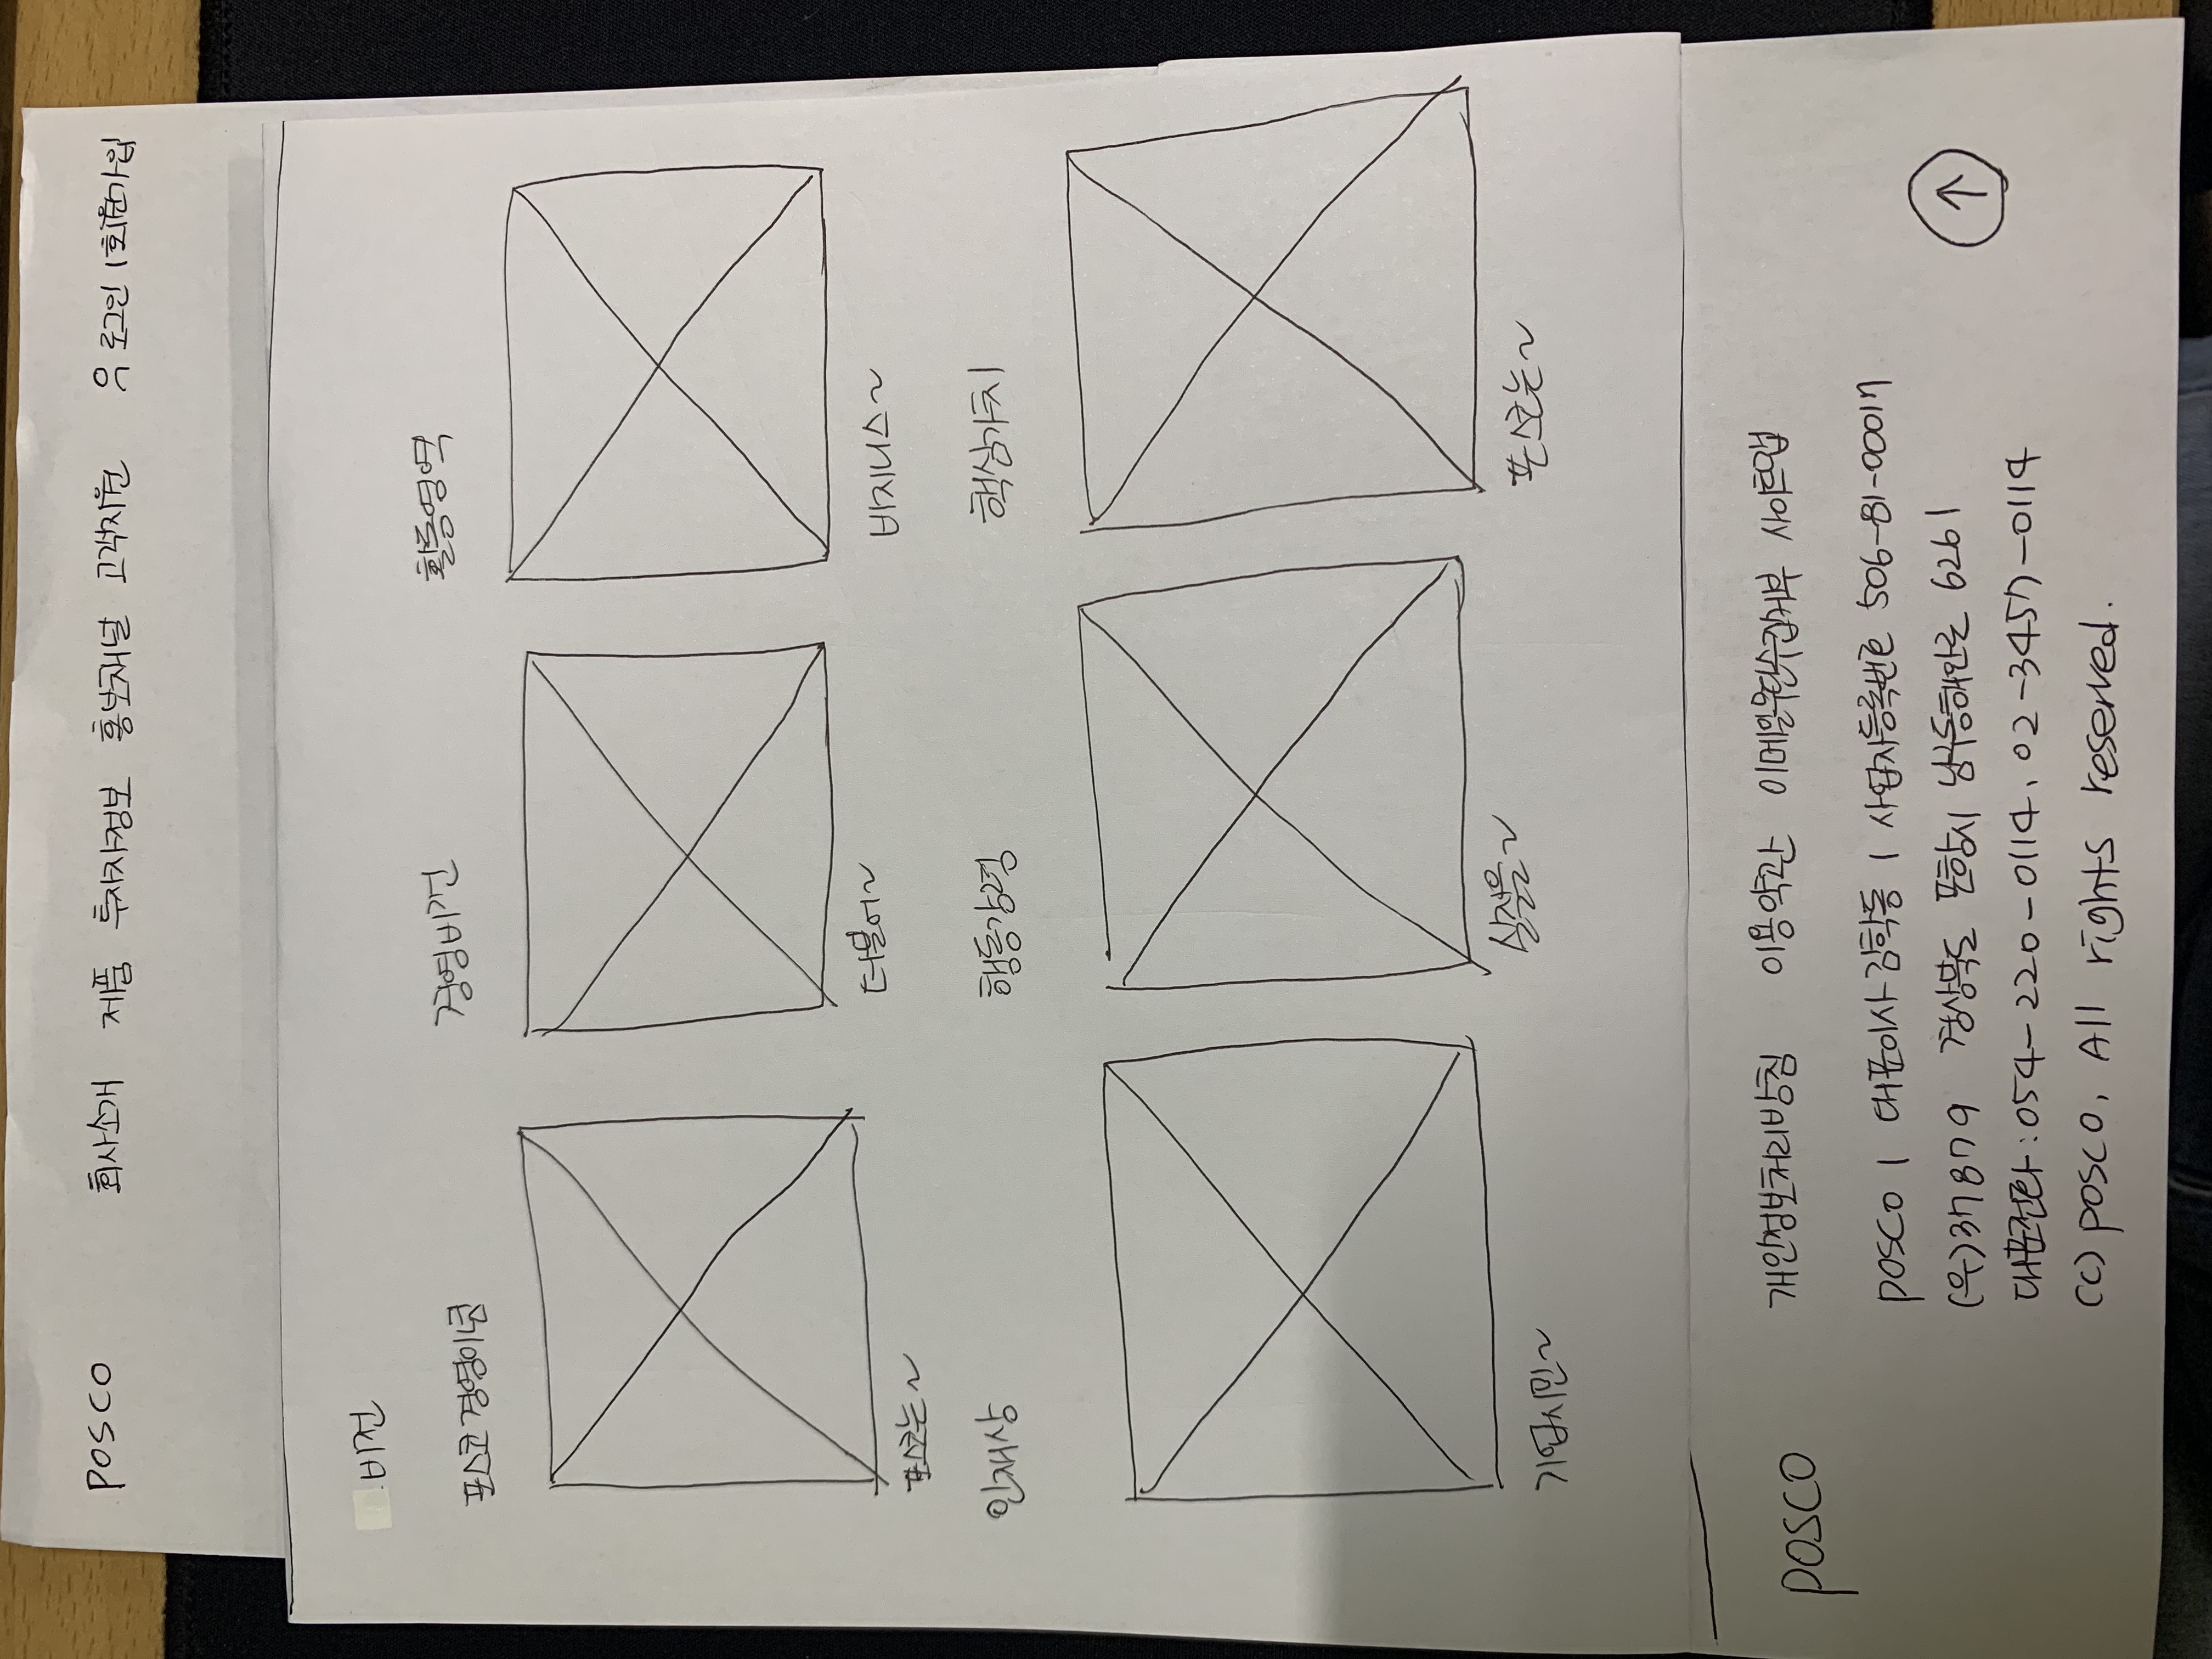 POSCO 회사소개 제품 투자자정보 홍보채널 고객지원 로그인 | 회원가입
.비전
포스코 경영이념 경영비전 활동영역
포스코는~ 더불어~ 비지니스~
인재상 행동강령 핵심가치
기업시민~ 실질을~ 포스코는~
POSCO 개인정보처리방침 이용약관 이메일무단수집거부 사이트맵
POSCO | 대표이사 김학동 | 사업자등록번호 506-81-00017
(우)37879 경상북도 포항시 남구동해안로 6261
대표전화 : 054-220-0114, 02-3457-0114
(C) POSCO, All rights reserved.